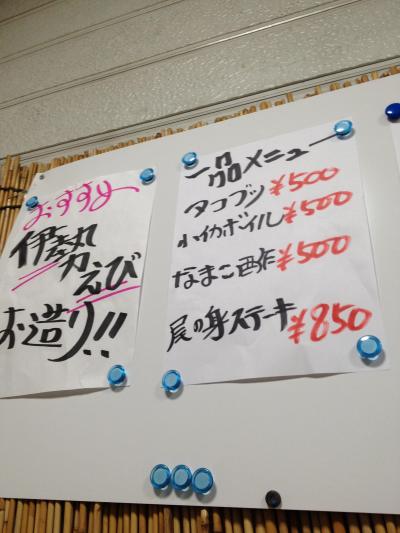 おすすめ
伊勢
えび
お造り!!
一品メニュー
タコブツ ¥500
小イカボイル ¥500
なまこ酢 ¥500
尾の身ステーキ ¥850